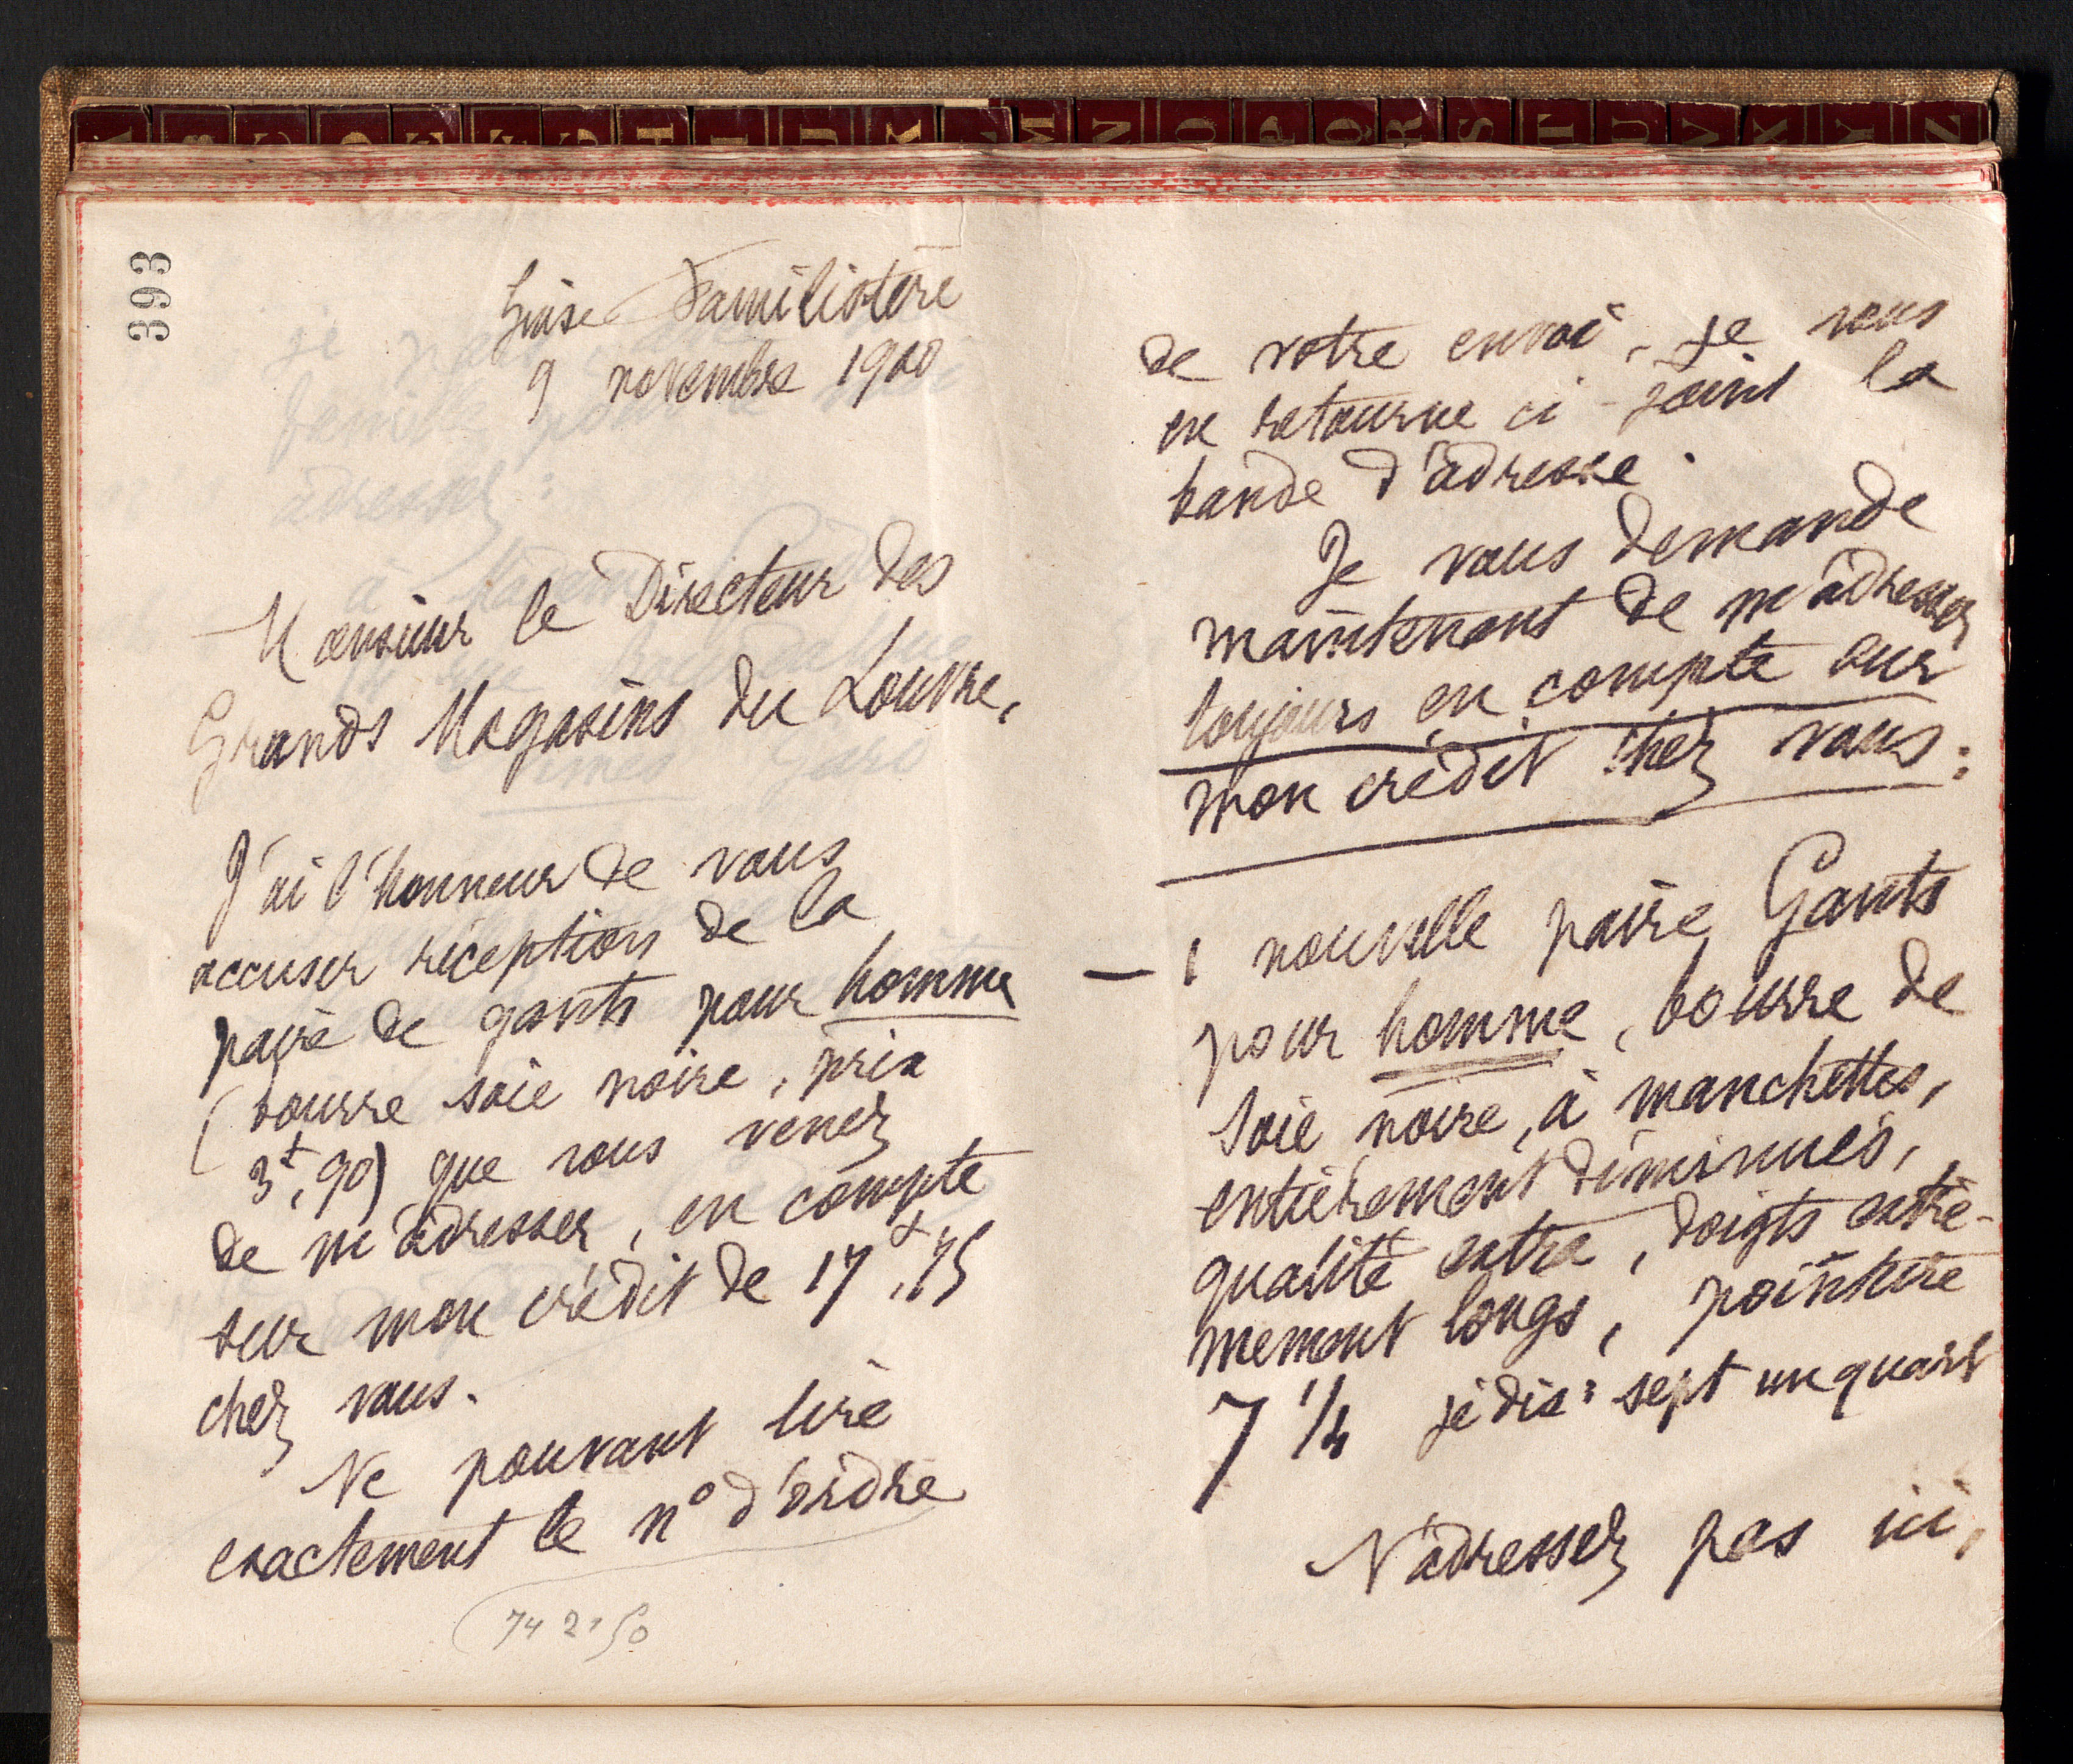 A B C D E F G H I J K L M N O P Q R S T U V X Y Z
393
Guise Familistère
9 novembre 1900
Monsieur le Directeur des
Grands Magasins du Louvre,
J'ai l'honneur de vous
accuser réception de la
paire de gants pour homme
(bourre soie noire, prix
3f,90) que vous venez
de m'adresser, en compte
sur mon crédit de 17f,75
chez vous.
Ne pouvant lire
exactement le n° d'ordre
74 2150
de votre envoi, je vous
en retourne ci-joint la
bande d'adresse.
Je vous demande
maintenant de m'adresser
toujours en compte sur
mon crédit chez vous:
— 1 nouvelle paire Gants
pour homme, bourre de
soie noire, à manchettes,
entièrement diminués,
qualité extra, doigts extrê-
mement longs, pointure
7 1/4 je dis: sept un quart
N'adressez pas ici,